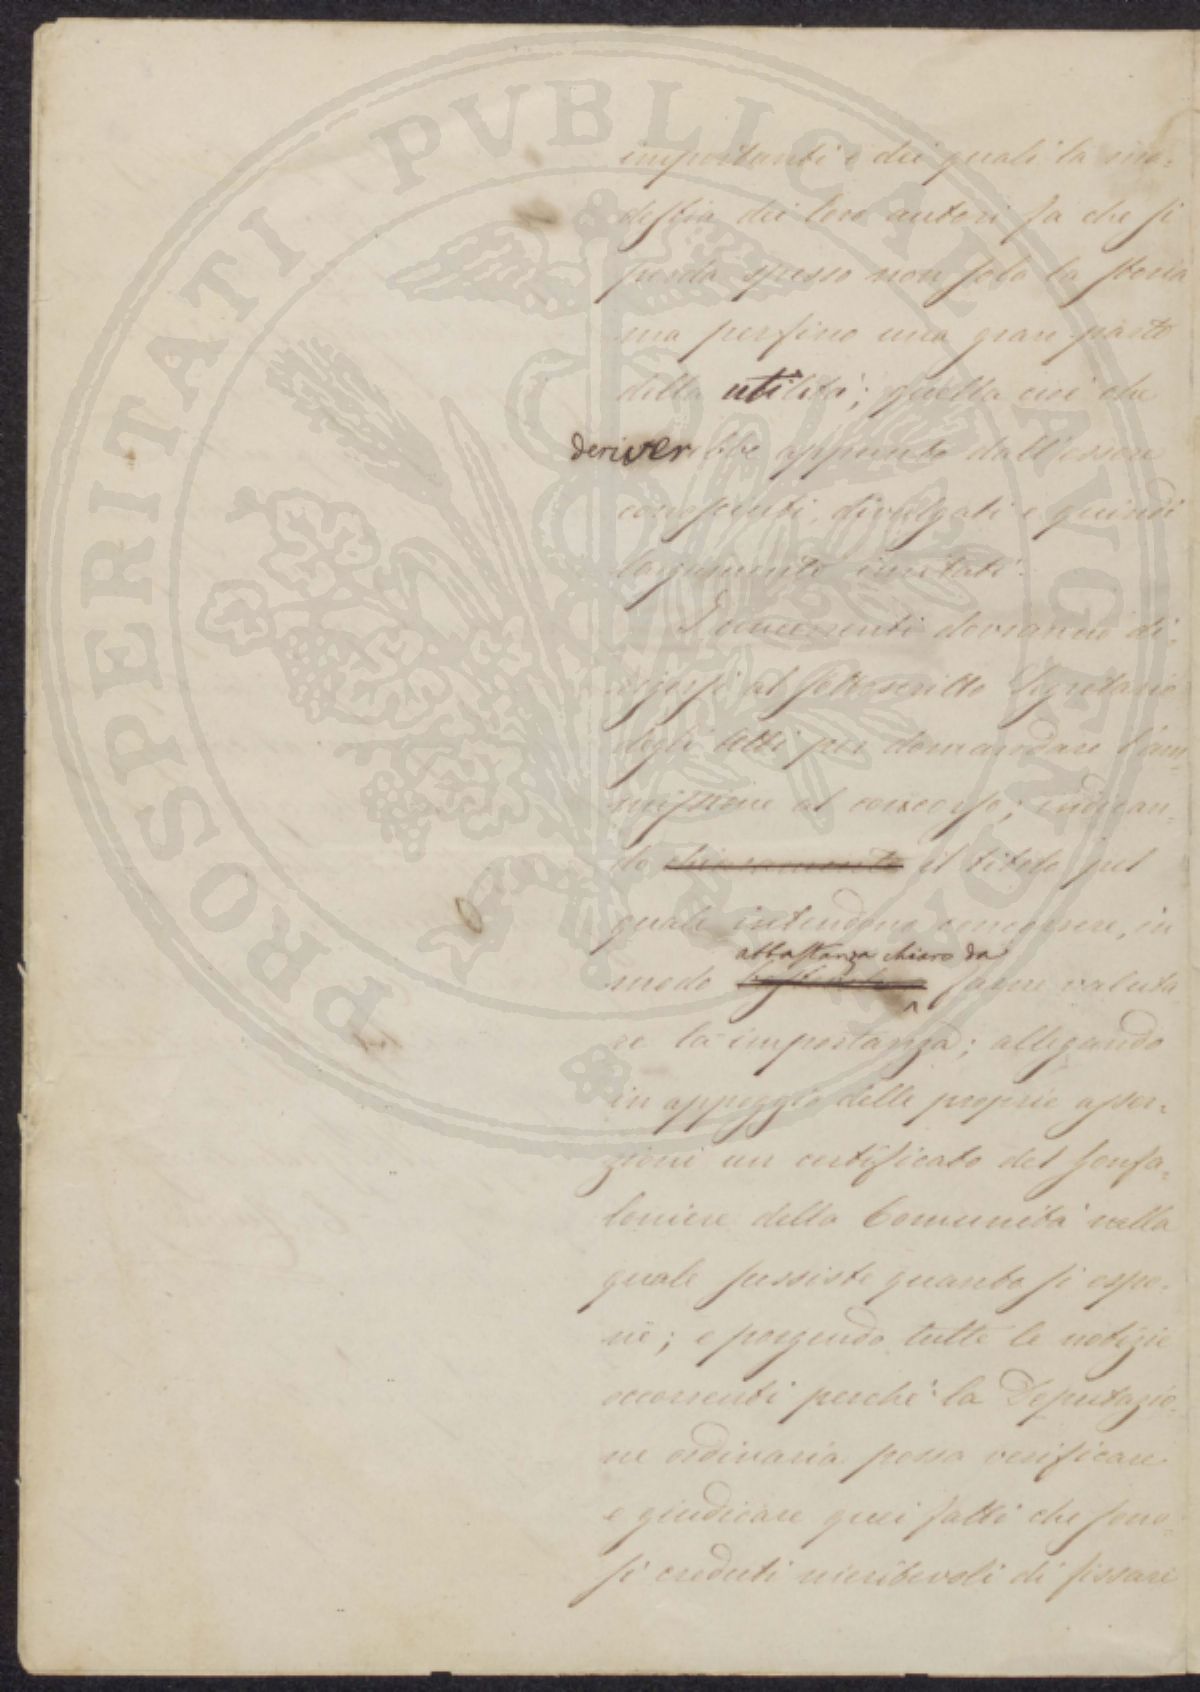 importanti e dei quali la mo=
destia dei loro autori fa che si
perda spesso non solo la storia
ma perfino una gran parte
della utilità; quella cioè che
deriverebbe appunto dall'essere
conosciuti, divulgati e quindi
largamente imitati.
I concorrenti dovranno di=
rigersi al sottoscritto Segretario
degli Atti per domandare l'am=
missione al concorso; indican=
do chiaramente il titolo pel
quale intendono concorrere, in
abbastanza chiaro da
modo farne valuta
re la importanza; allegando
in appoggio delle proprie asser=
zioni un certificato del Gonfa=
loniere della Comunità nella
quale sussiste quanto si espo=
ne; e porgendo tutte le notizie
occorrenti perchè la Deputazio=
ne ordinaria possa verificare
e giudicare quei fatti che sono=
si creduti meritevoli di fissare
PROSPERITATI PVBLICAE AVGENDAE